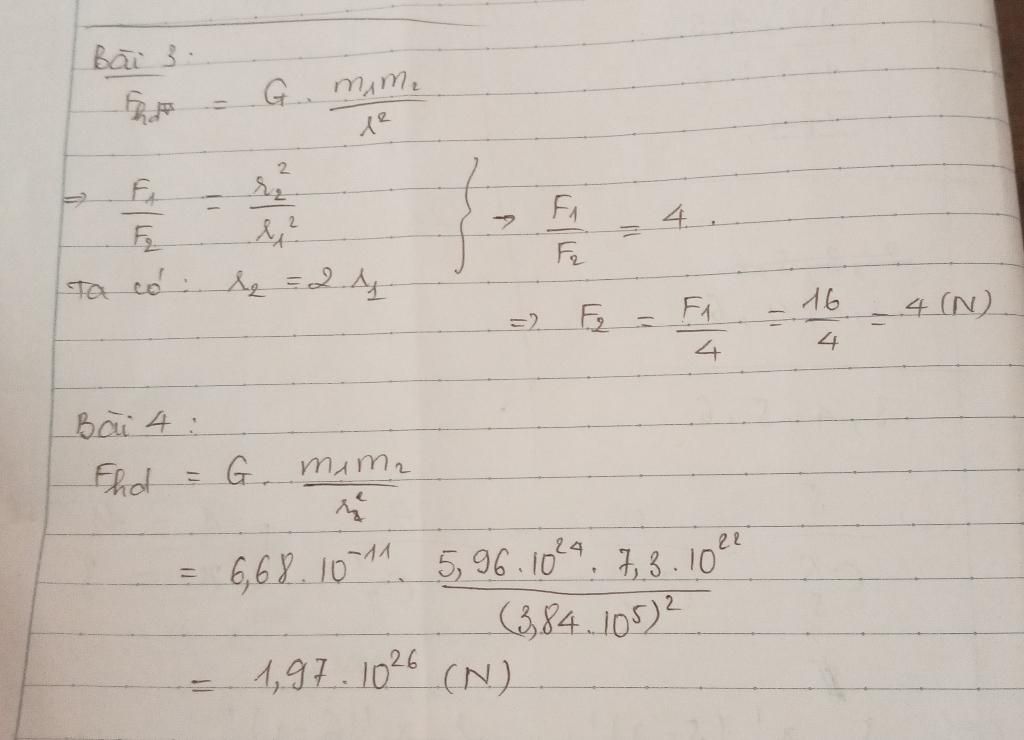 Bài 3:
Fhd = G . m1m2 / r²
=> F1 / F2 = r2² / r1²
Ta có: r2 = 2 r1
} → F1 / F2 = 4 .
=> F2 = F1 / 4 = 16 / 4 = 4 (N)
Bài 4:
Fhd = G . m1m2 / r²
= 6,68 . 10⁻¹¹ . 5,96 . 10²⁴ . 7,3 . 10²² / (3,84 . 10⁵)²
= 1,97 . 10²⁶ (N)